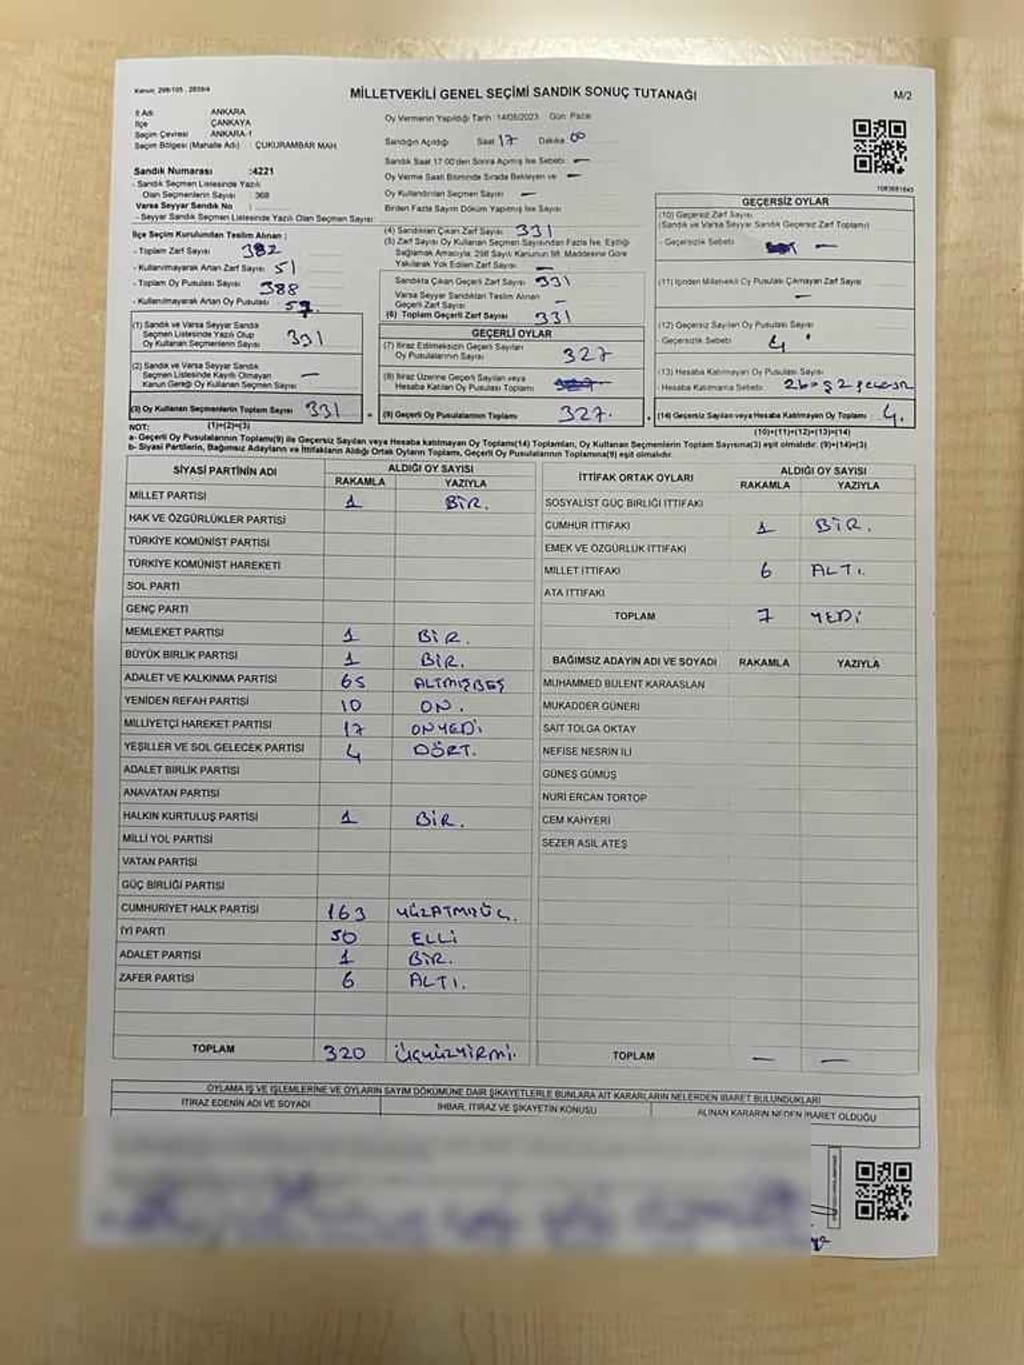 Kanun: 298/105 , 2839/4
MİLLETVEKİLİ GENEL SEÇİMİ SANDIK SONUÇ TUTANAĞI
M/2
İl Adı: ANKARA
İlçe ÇANKAYA
Seçim Çevresi ANKARA-1
Seçim Bölgesi (Mahalle Adı) : ÇUKURAMBAR MAH.
Oy Vermenin Yapıldığı Tarih :14/05/2023 Gün: Pazar
Sandığın Açıldığı Saat 17 Dakika 00
Sandık Saat 17:00'den Sonra Açılmış İse Sebebi: —
Oy Verme Saati Bitiminde Sırada Bekleyen ve —
Oy Kullandırılan Seçmen Sayısı —
Birden Fazla Sayım Döküm Yapılmış İse Sayısı
Sandık Numarası :4221
- Sandık Seçmen Listesinde Yazılı
Olan Seçmenlerin Sayısı : 368
Varsa Seyyar Sandık No :
- Seyyar Sandık Seçmen Listesinde Yazılı Olan Seçmen Sayısı:
İlçe Seçim Kurulundan Teslim Alınan :
- Toplam Zarf Sayısı 382
- Kullanılmayarak Artan Zarf Sayısı 51
- Toplam Oy Pusulası Sayısı 388
- Kullanılmayarak Artan Oy Pusulası : 57.
(1) Sandık ve Varsa Seyyar Sandık
Seçmen Listesinde Yazılı Olup
Oy Kullanan Seçmenlerin Sayısı 331
(2) Sandık ve Varsa Seyyar Sandık
Seçmen Listesinde Kayıtlı Olmayan
Kanun Gereği Oy Kullanan Seçmen Sayısı —
(3) Oy Kullanan Seçmenlerin Toplam Sayısı 331
(1)+(2)=(3)
(4) Sandıktan Çıkan Zarf Sayısı 331
(5) Zarf Sayısı Oy Kullanan Seçmen Sayısından Fazla İse, Eşitliği
Sağlamak Amacıyla; 298 Sayılı Kanunun 98. Maddesine Göre
Yakılarak Yok Edilen Zarf Sayısı —
Sandıkta Çıkan Geçerli Zarf Sayısı 331
Varsa Seyyar Sandıktan Teslim Alınan
Geçerli Zarf Sayısı —
(6) Toplam Geçerli Zarf Sayısı 331
GEÇERLİ OYLAR
(7) İtiraz Edilmeksizin Geçerli Sayılan
Oy Pusulalarının Sayısı 327
(8) İtiraz Üzerine Geçerli Sayılan veya
Hesaba Katılan Oy Pusulası Toplamı
(9) Geçerli Oy Pusulalarının Toplamı 327.
1083681643
GEÇERSİZ OYLAR
(10) Geçersiz Zarf Sayısı
(Sandık ve Varsa Seyyar Sandık Geçersiz Zarf Toplamı)
- Geçersizlik Sebebi —
(11) İçinden Milletvekili Oy Pusulası Çıkmayan Zarf Sayısı
—
(12) Geçersiz Sayılan Oy Pusulası Sayısı
- Geçersizlik Sebebi : 4
(13) Hesaba Katılmayan Oy Pusulası Sayısı
- Hesaba Katılmama Sebebi: 2 boş 2 geçersiz
(14) Geçersiz Sayılan veya Hesaba Katılmayan Oy Toplamı 4.
(10)+(11)+(12)+(13)=(14)
NOT:
a- Geçerli Oy Pusulalarının Toplamı(9) ile Geçersiz Sayılan veya Hesaba katılmayan Oy Toplamı(14) Toplamları, Oy Kullanan Seçmenlerin Toplam Sayısına(3) eşit olmalıdır. (9)+(14)=(3)
b- Siyasi Partilerin, Bağımsız Adayların ve İttifakların Aldığı Ortak Oyların Toplamı, Geçerli Oy Pusulalarının Toplamına(9) eşit olmalıdır.
SİYASİ PARTİNİN ADI ALDIĞI OY SAYISI
RAKAMLA YAZIYLA
MİLLET PARTİSİ 1 BİR.
HAK VE ÖZGÜRLÜKLER PARTİSİ
TÜRKİYE KOMÜNİST PARTİSİ
TÜRKİYE KOMÜNİST HAREKETİ
SOL PARTİ
GENÇ PARTİ
MEMLEKET PARTİSİ 1 BİR.
BÜYÜK BİRLİK PARTİSİ 1 BİR.
ADALET VE KALKINMA PARTİSİ 65 ALTMIŞBEŞ
YENİDEN REFAH PARTİSİ 10 ON.
MİLLİYETÇİ HAREKET PARTİSİ 17 ONYEDİ
YEŞİLLER VE SOL GELECEK PARTİSİ 4 DÖRT.
ADALET BİRLİK PARTİSİ
ANAVATAN PARTİSİ
HALKIN KURTULUŞ PARTİSİ 1 BİR.
MİLLİ YOL PARTİSİ
VATAN PARTİSİ
GÜÇ BİRLİĞİ PARTİSİ
CUMHURİYET HALK PARTİSİ 163
İYİ PARTİ 50 ELLİ
ADALET PARTİSİ 1 BİR.
ZAFER PARTİSİ 6 ALTI.
TOPLAM 320 ÜÇYÜZYİRMİ.
İTTİFAK ORTAK OYLARI ALDIĞI OY SAYISI
RAKAMLA YAZIYLA
SOSYALİST GÜÇ BİRLİĞİ İTTİFAKI
CUMHUR İTTİFAKI 1 BİR.
EMEK VE ÖZGÜRLÜK İTTİFAKI
MİLLET İTTİFAKI 6 ALTI.
ATA İTTİFAKI
TOPLAM 7 YEDİ
BAĞIMSIZ ADAYIN ADI VE SOYADI RAKAMLA YAZIYLA
MUHAMMED BÜLENT KARAASLAN
MUKADDER GÜNERİ
SAİT TOLGA OKTAY
NEFİSE NESRİN İLİ
GÜNEŞ GÜMÜŞ
NURİ ERCAN TORTOP
CEM KAHYERİ
SEZER ASİL ATEŞ
TOPLAM — —
OYLAMA İŞ VE İŞLEMLERİNE VE OYLARIN SAYIM DÖKÜMÜNE DAİR ŞİKAYETLERLE BUNLARA AİT KARARLARIN NELERDEN İBARET BULUNDUKLARI
İTİRAZ EDENİN ADI VE SOYADI İHBAR, İTİRAZ VE ŞİKAYETİN KONUSU ALINAN KARARIN NEDEN İBARET OLDUĞU